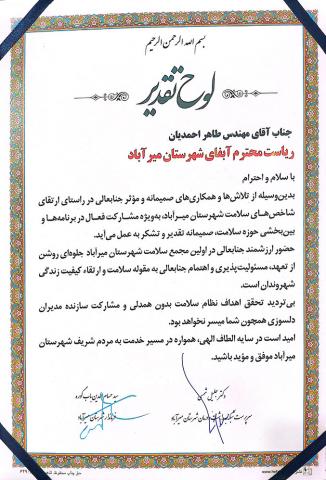 بسم الله الرحمن الرحیم
لوح تقدیر
جناب آقای مهندس طاهر احمدیان
ریاست محترم آبفای شهرستان میرآباد
با سلام و احترام
بدین‌وسیله از تلاش‌ها و همکاری‌های صمیمانه و مؤثر جنابعالی در راستای ارتقای
شاخص‌های سلامت شهرستان میرآباد، به‌ویژه مشارکت فعال در برنامه‌ها و
بین‌بخشی حوزه سلامت، صمیمانه تقدیر و تشکر به عمل می‌آید.
حضور ارزشمند جنابعالی در اولین مجمع سلامت شهرستان میرآباد جلوه‌ای روشن
از تعهد، مسئولیت‌پذیری و اهتمام جنابعالی به مقوله سلامت و ارتقاء کیفیت زندگی
شهروندان است.
بی‌تردید تحقق اهداف نظام سلامت بدون همدلی و مشارکت سازنده مدیران
دلسوزی همچون شما میسر نخواهد بود.
امید است در سایه الطاف الهی، همواره در مسیر خدمت به مردم شریف شهرستان
میرآباد موفق و مؤید باشید.
دکتر جلیل
سرپرست شبکه بهداشت و درمان شهرستان میرآباد
سید حسام‌الدین
فرماندار شهرستان میرآباد
۶۲۹
حق چاپ محفوظ